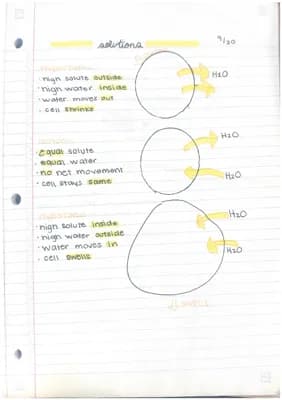 solutions
9/20
· high solute outside
· high water inside
· water moves out
· cell shrinks
H2O
· equal solute
· equal water
· no net movement
· cell stays same
H2O
H2O
· high solute inside
· high water outside
· water moves in
· cell swells
H2O
H2O